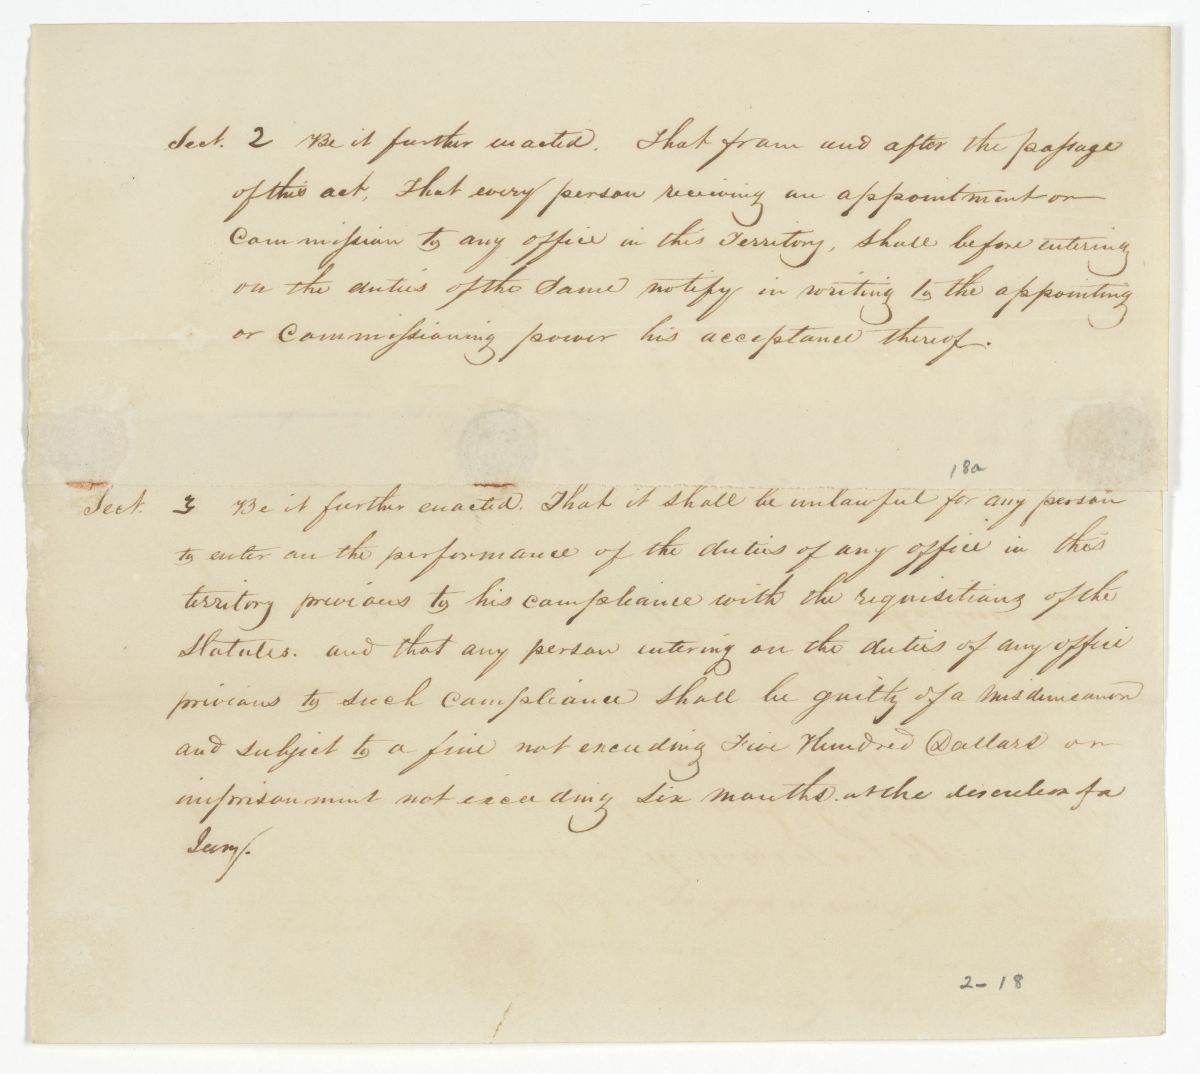 Sect. 2 Be it further enacted. That from and after the passage
of this act, That every person receiving an appointment or
Commission to any office in this Territory, shall before entering
on the duties of the Same notify in writing to the appointing
or Commissioning power his acceptance thereof.
18a
Sect. 3 Be it further enacted. That it shall be unlawful for any person
to enter on the performance of the duties of any office in this
territory previous to his compliance with the requisitions of the
Statutes. and that any person entering on the duties of any office
previous to such compliance shall be guilty of a misdemeanor
and subject to a fine not exceeding Five Hundred Dollars or
imprisonment not exceeding Six months. at the discretion of a
Jury.
2-18